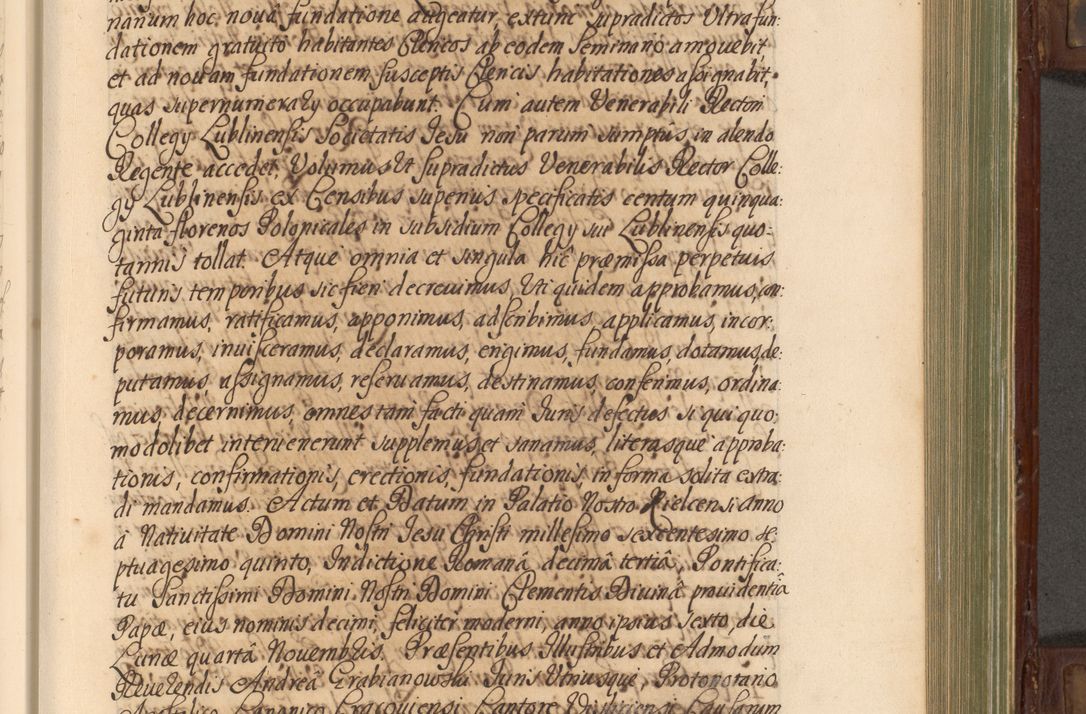 nanum hoc novâ fundatione augeatur, extunc supradictos Ultrafun:
dationem gratuitò habitantes Clericos ab eodem Seminario amovebit
et ad novam fundationem susceptis Clericis habitationes assignabit,
quas supernumerary occupabunt. Cum autem Venerabili Rectori
Collegy Lublinensis Societatis Jesu non parum sumptus, in alendo
Regente accedet, Volumus Ut supradictus Venerabilis Rector Colle:
gy Lublinensis ex Censibus superius specificatis centum quinqua:
ginta florenos Polonicales in subsidium Collegy sui Lublinensis quo:
tannis tollat. Atque omnia et singula hîc præmissa perpetuis
futuris temporibus sic fieri decrevimus, Uti quidem approbamus, con:
firmamus, ratificamus, apponimus, adscribimus, applicamus, incor:
poramus, invisceramus, declaramus, erigimus, fundamus, dotamus, de:
putamus, assignamus, reservamus, destinamus, conferimus, ordina:
mus, decernimus, omnes tam facti quam Juris defectus si qui quo:
modolibet intervenerunt supplemus, et sanamus, literasque approba:
tionis, confirmationis, erectionis, fundationis, in forma solita extra:
di mandamus. Actum et Datum in Palatio Nostro Kielcensi anno
à Nativitate Domini Nostri Jesu Christi millesimo sexcentesimo se:
ptuagesimo quinto, Indictione Romanâ decimâ tertiâ, Pontifica:
tu Sanctissimi Domini Nostri Domini Clementis Divinâ providentiâ
Papæ, eius nominis decimi, feliciter moderni, anno ipsius sexto, die
Lunæ quartâ Novembris. Præsentibus Illustribus et Admodum
Reverendis Andreâ Grabianowski Juris Utriusque, Protonotario
Apostolico, Canonico Cracoviensi, Cantore